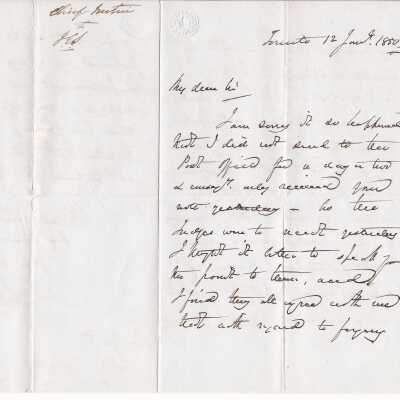 Chief Justice
to
JCS
Toronto 12 Jany. 1850
My dear Sir
I am sorry it so happened
that I did not send to the
Post Office for a day or two
& only received your
note yesterday – as the
Judges were to meet yesterday
I thought it better to speak
the point to them, and
I find they all agree with me
that with regard to forgery